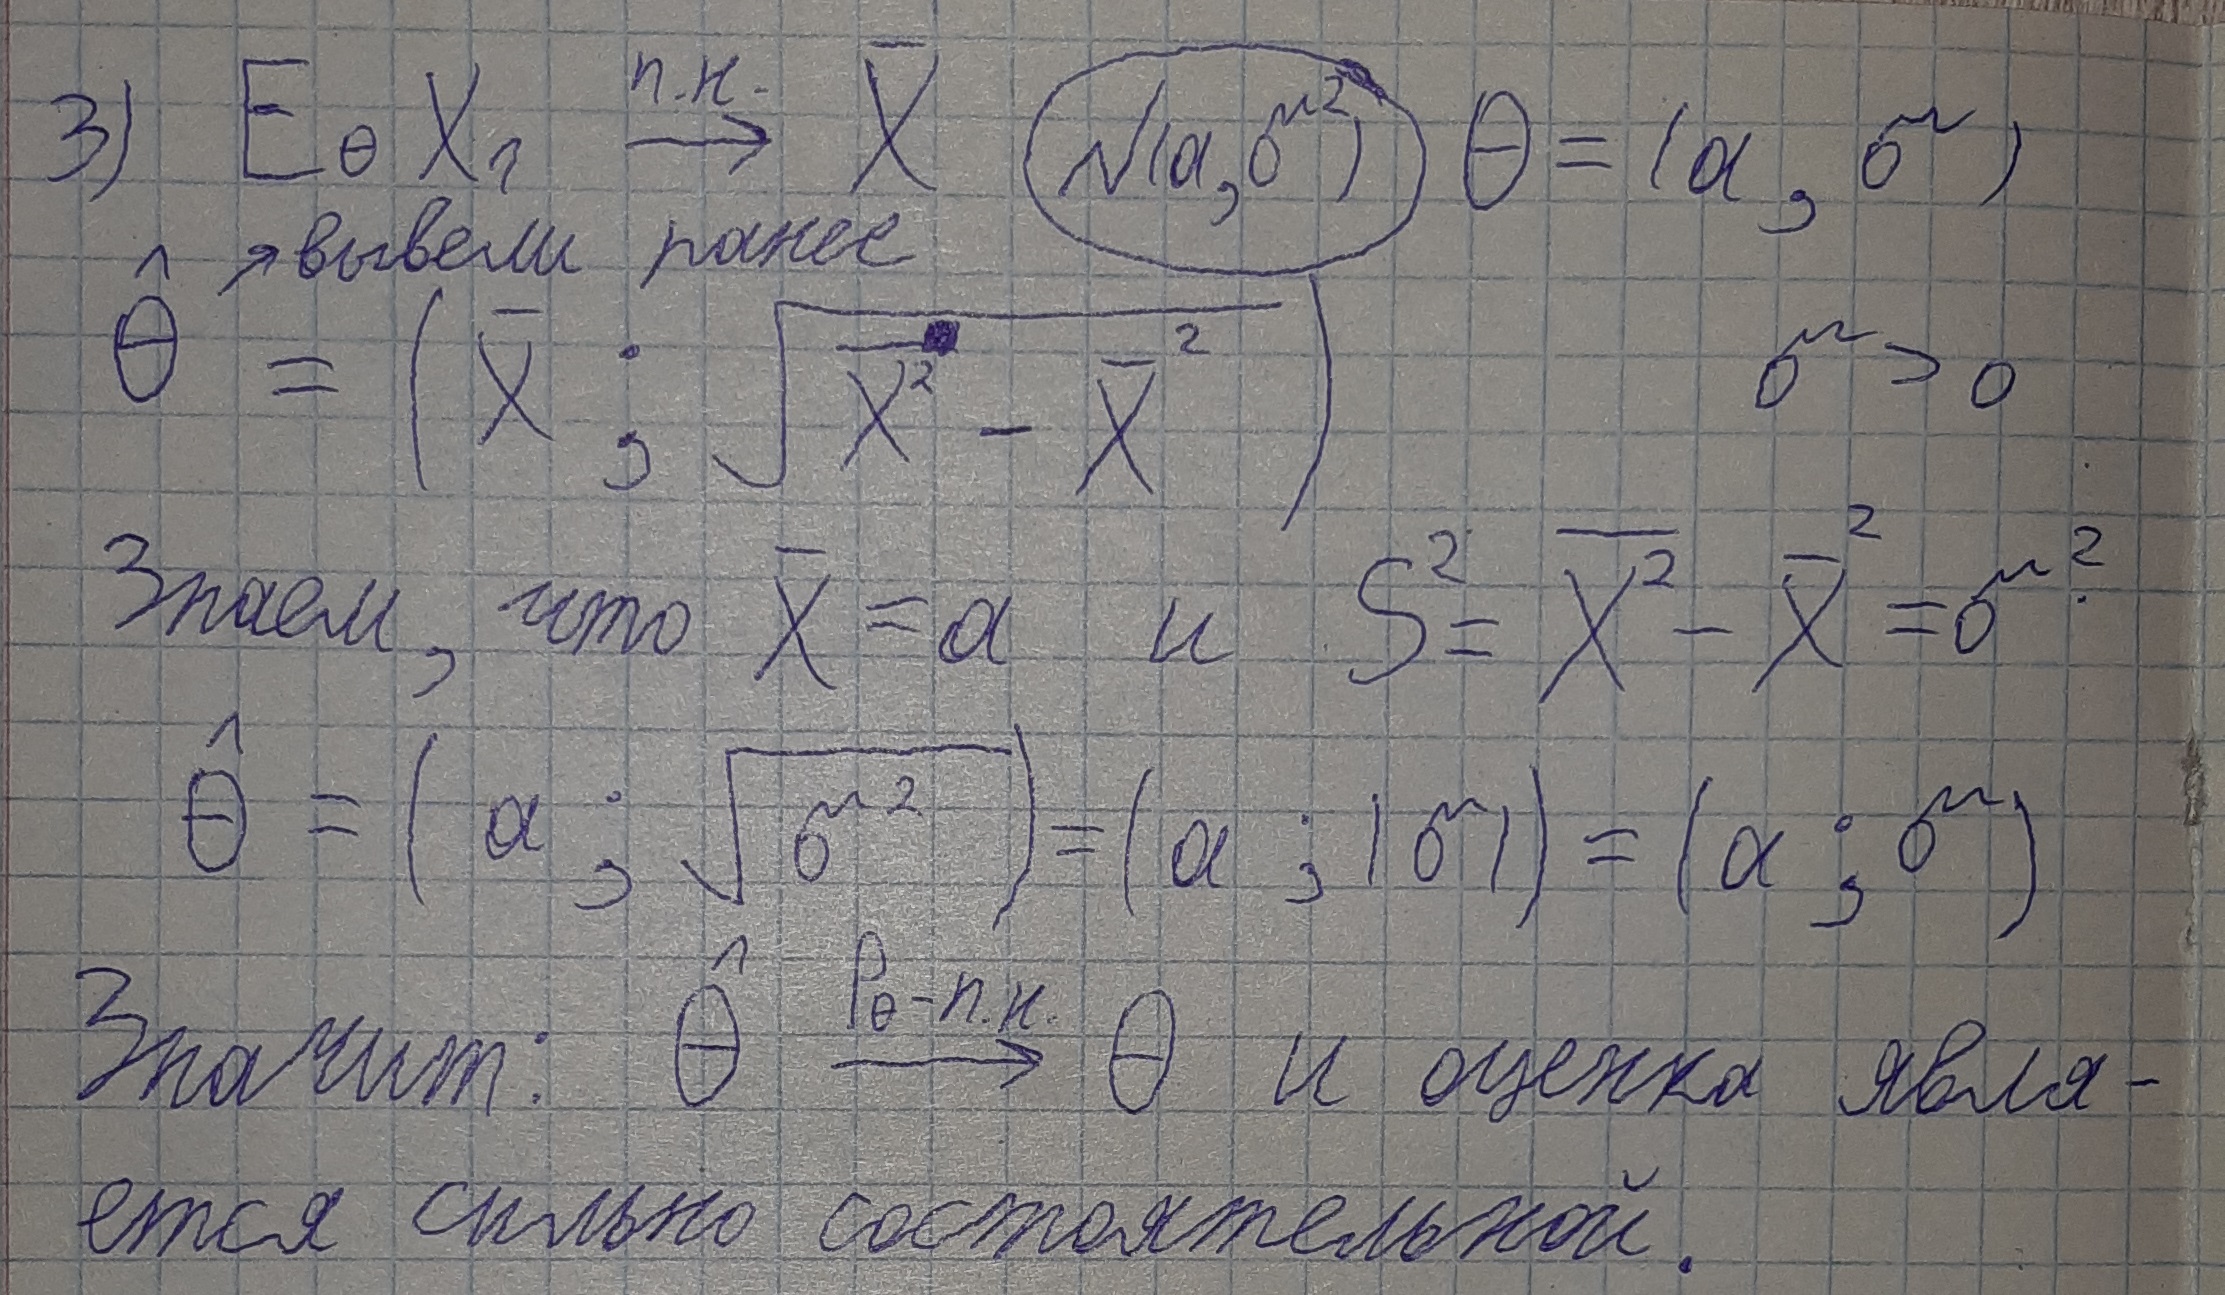 3) E_θ X₁ \xrightarrow{п.н.} X̄ (N(a, σ²)) θ = (a, σ)
↗ вывели ранее
θ̂ = (X̄ ; √(\overline{X²} - X̄²)) σ > 0
Знаем, что X̄ = a и S² = \overline{X²} - X̄² = σ².
θ̂ = (a ; √σ²) = (a ; |σ|) = (a ; σ)
Значит: θ̂ \xrightarrow{P_θ-п.н.} θ и оценка явля-
ется сильно состоятельной.